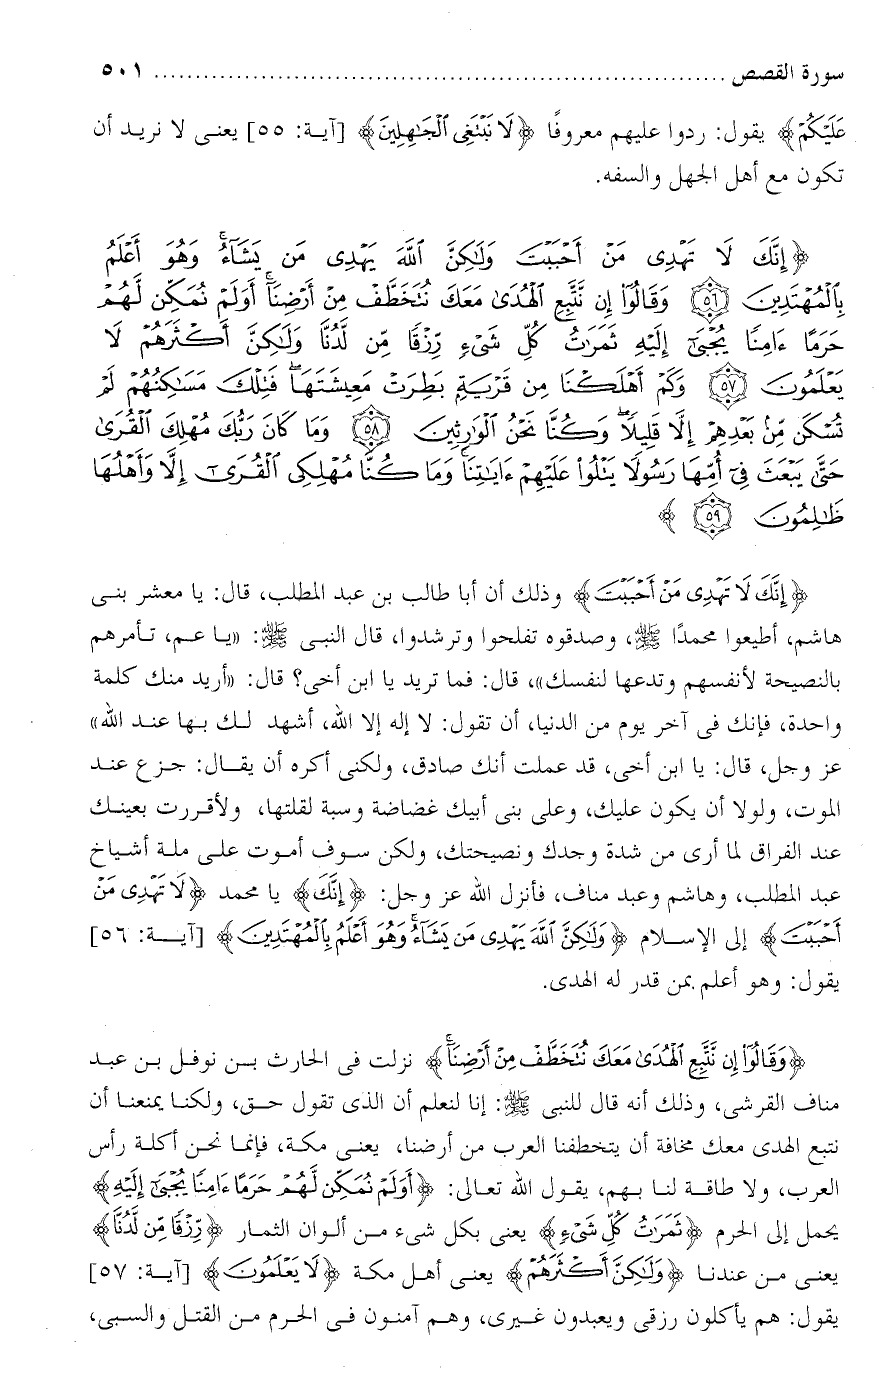 سورة القصص ........................................................................ ٥٠١
عَلَيْكُمْ﴾ يقول: ردوا عليهم معروفًا ﴿لَا نَبْتَغِى ٱلْجَٰهِلِينَ﴾ [آية: ٥٥] يعنى لا نريد أن
تكون مع أهل الجهل والسفه.
﴿إِنَّكَ لَا تَهْدِى مَنْ أَحْبَبْتَ وَلَٰكِنَّ ٱللَّهَ يَهْدِى مَن يَشَآءُ ۚ وَهُوَ أَعْلَمُ
بِٱلْمُهْتَدِينَ ٥٦ وَقَالُوٓا۟ إِن نَّتَّبِعِ ٱلْهُدَىٰ مَعَكَ نُتَخَطَّفْ مِنْ أَرْضِنَآ ۚ أَوَلَمْ نُمَكِّن لَّهُمْ
حَرَمًا ءَامِنًا يُجْبَىٰٓ إِلَيْهِ ثَمَرَٰتُ كُلِّ شَىْءٍ رِّزْقًا مِّن لَّدُنَّا وَلَٰكِنَّ أَكْثَرَهُمْ لَا
يَعْلَمُونَ ٥٧ وَكَمْ أَهْلَكْنَا مِن قَرْيَةٍۭ بَطِرَتْ مَعِيشَتَهَا ۖ فَتِلْكَ مَسَٰكِنُهُمْ لَمْ
تُسْكَن مِّنۢ بَعْدِهِمْ إِلَّا قَلِيلًا ۖ وَكُنَّا نَحْنُ ٱلْوَٰرِثِينَ ٥٨ وَمَا كَانَ رَبُّكَ مُهْلِكَ ٱلْقُرَىٰ
حَتَّىٰ يَبْعَثَ فِىٓ أُمِّهَا رَسُولًا يَتْلُوا۟ عَلَيْهِمْ ءَايَٰتِنَا ۚ وَمَا كُنَّا مُهْلِكِى ٱلْقُرَىٰٓ إِلَّا وَأَهْلُهَا
ظَٰلِمُونَ ٥٩ ﴾
﴿إِنَّكَ لَا تَهْدِى مَنْ أَحْبَبْتَ﴾ وذلك أن أبا طالب بن عبد المطلب، قال: يا معشر بنى
هاشم، أطيعوا محمدًا ﷺ، وصدقوه تفلحوا وترشدوا، قال النبى ﷺ: «يا عم، تأمرهم
بالنصيحة لأنفسهم وتدعها لنفسك»، قال: فما تريد يا ابن أخى؟ قال: «أريد منك كلمة
واحدة، فإنك فى آخر يوم من الدنيا، أن تقول: لا إله إلا الله، أشهد لك بها عند الله»
عز وجل، قال: يا ابن أخى، قد عملت أنك صادق، ولكنى أكره أن يقال: جزع عند
الموت، ولولا أن يكون عليك، وعلى بنى أبيك غضاضة وسبة لقلتها، ولأقررت بعينك
عند الفراق لما أرى من شدة وجدك ونصيحتك، ولكن سوف أموت على ملة أشياخ
عبد المطلب، وهاشم وعبد مناف، فأنزل الله عز وجل: ﴿إِنَّكَ﴾ يا محمد ﴿لَا تَهْدِى مَنْ
أَحْبَبْتَ﴾ إلى الإسلام ﴿وَلَٰكِنَّ ٱللَّهَ يَهْدِى مَن يَشَآءُ ۚ وَهُوَ أَعْلَمُ بِٱلْمُهْتَدِينَ﴾ [آية: ٥٦]
يقول: وهو أعلم بمن قدر له الهدى.
﴿وَقَالُوٓا۟ إِن نَّتَّبِعِ ٱلْهُدَىٰ مَعَكَ نُتَخَطَّفْ مِنْ أَرْضِنَآ ۚ﴾ نزلت فى الحارث بن نوفل بن عبد
مناف القرشى، وذلك أنه قال للنبى ﷺ: إنا لنعلم أن الذى تقول حق، ولكنا يمنعنا أن
نتبع الهدى معك مخافة أن يتخطفنا العرب من أرضنا، يعنى مكة، فإنما نحن أكلة رأس
العرب، ولا طاقة لنا بهم، يقول الله تعالى: ﴿أَوَلَمْ نُمَكِّن لَّهُمْ حَرَمًا ءَامِنًا يُجْبَىٰٓ إِلَيْهِ﴾
يحمل إلى الحرم ﴿ثَمَرَٰتُ كُلِّ شَىْءٍ﴾ يعنى بكل شىء من ألوان الثمار ﴿رِّزْقًا مِّن لَّدُنَّا﴾
يعنى من عندنا ﴿وَلَٰكِنَّ أَكْثَرَهُمْ﴾ يعنى أهل مكة ﴿لَا يَعْلَمُونَ﴾ [آية: ٥٧]
يقول: هم يأكلون رزقى ويعبدون غيرى، وهم آمنون فى الحرم من القتل والسبى،